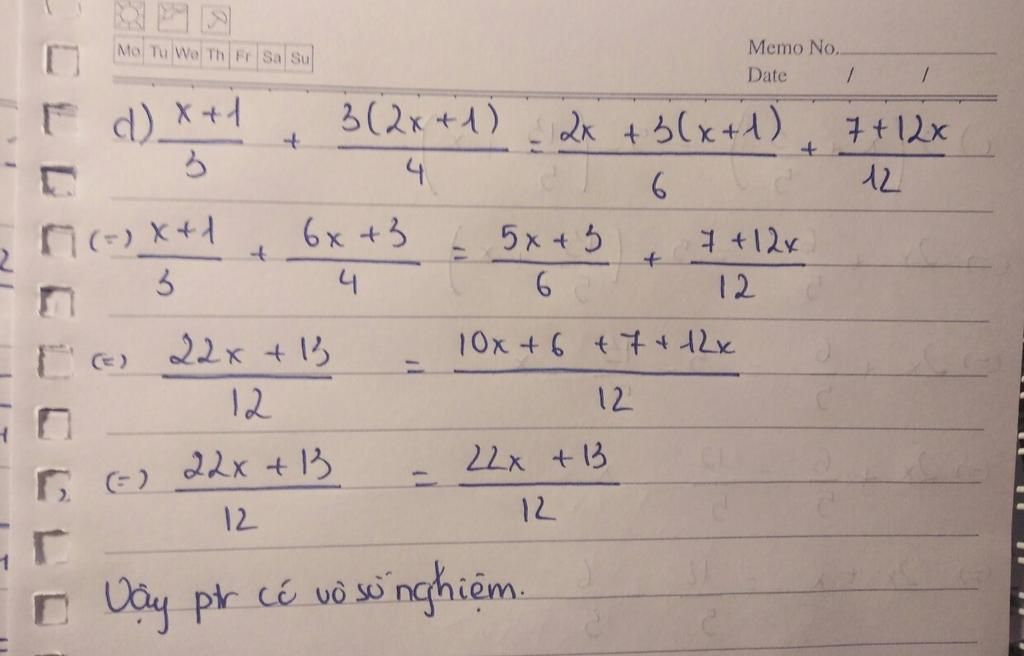 Mo Tu We Th Fr Sa Su
Memo No.
Date / /
d) (x+1)/3 + 3(2x+1)/4 = (2x + 3(x+1))/6 + (7+12x)/12
(=) (x+1)/3 + (6x+3)/4 = (5x+3)/6 + (7+12x)/12
(=) (22x+13)/12 = (10x+6+7+12x)/12
(=) (22x+13)/12 = (22x+13)/12
Vậy ptr có vô số nghiệm.